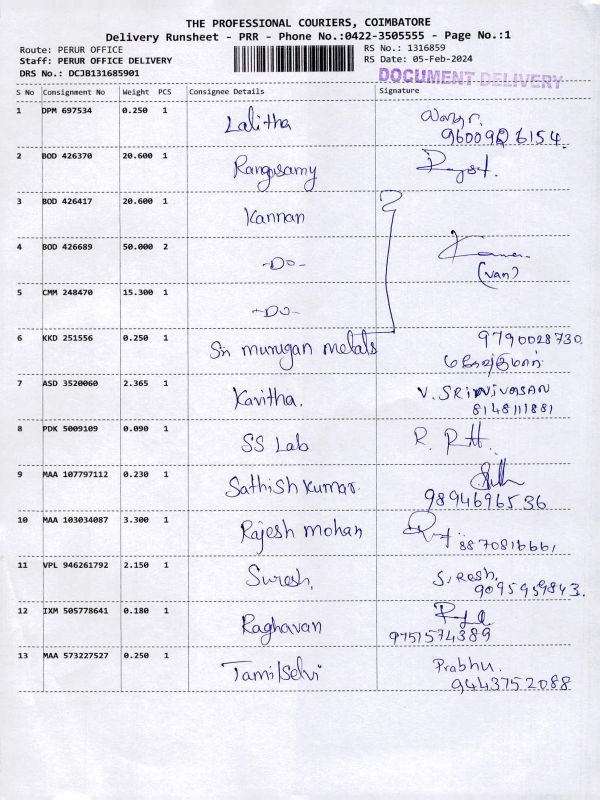 THE PROFESSIONAL COURIERS, COIMBATORE
Delivery Runsheet - PRR - Phone No.:0422-3505555 - Page No.:1
Route: PERUR OFFICE RS No.: 1316859
Staff: PERUR OFFICE DELIVERY RS Date: 05-Feb-2024
DRS No.: DCJB131685901 DOCUMENT DELIVERY
S No Consignment No Weight PCS Consignee Details Signature
1 DPM 697534 0.250 1 Lalitha
9600926154.
2 BOD 426370 20.600 1 Rangasamy
3 BOD 426417 20.600 1 Kannan
4 BOD 426689 50.000 2 -Do-
(van)
5 CMM 248470 15.300 1 -Do-
6 KKD 251556 0.250 1 Sri murugan metals 9790028730.
7 ASD 3520060 2.365 1 Kavitha. V. SRINIVASAN
8148111881
8 PDK 5009109 0.090 1 SS Lab R.
9 MAA 107797112 0.230 1 Sathish kumar.
9894696536
10 MAA 103034087 3.300 1 Rajesh mohan
8870816661
11 VPL 946261792 2.150 1 Suresh. Suresh.
9095959843.
12 IXM 505778641 0.180 1 Raghavan
9751574389
13 MAA 573227527 0.250 1 Tamilselvi Prabhu.
9443752088